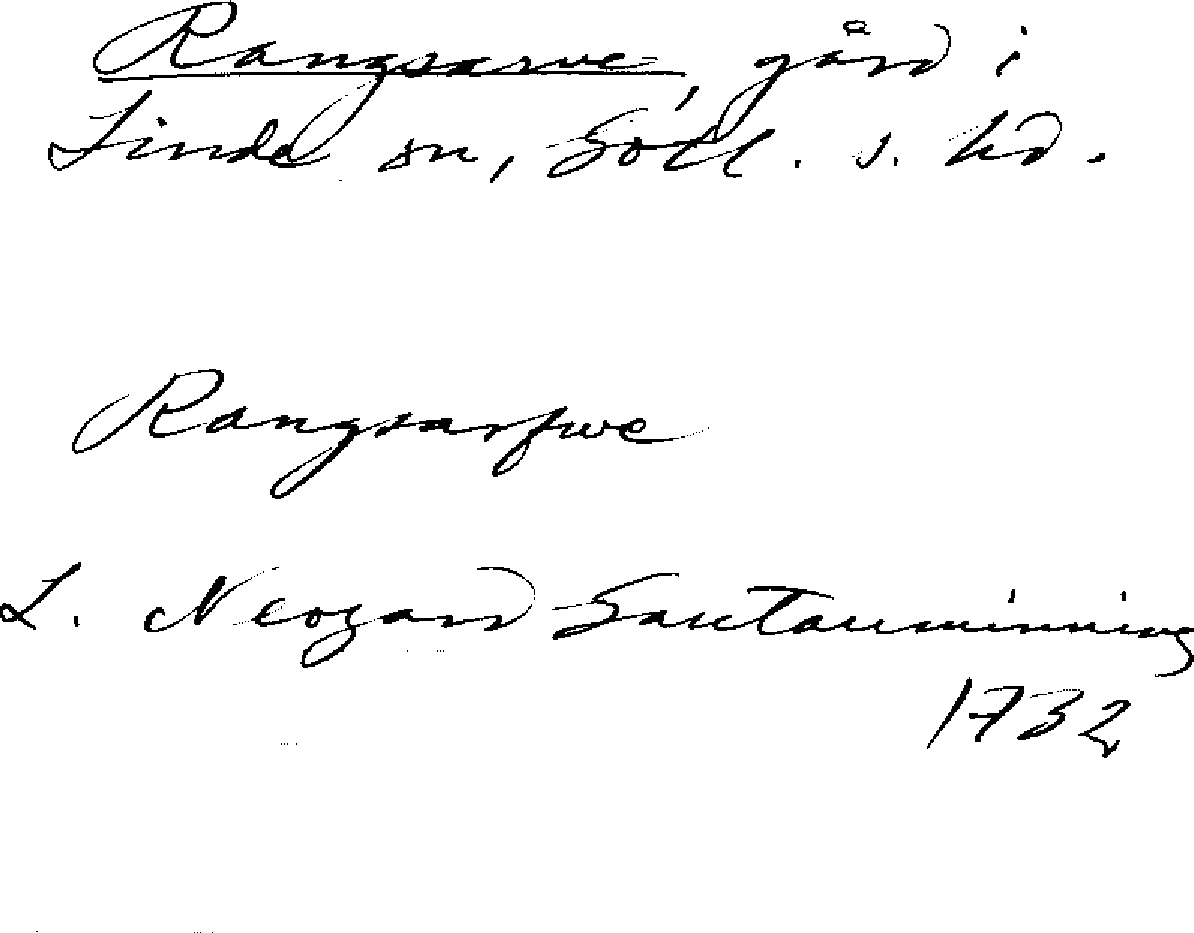 Rangsarve, gård i
Linde sn, Gotl. s. hd.
Rangsarfwe
L. Neogard Gautauminning
1732